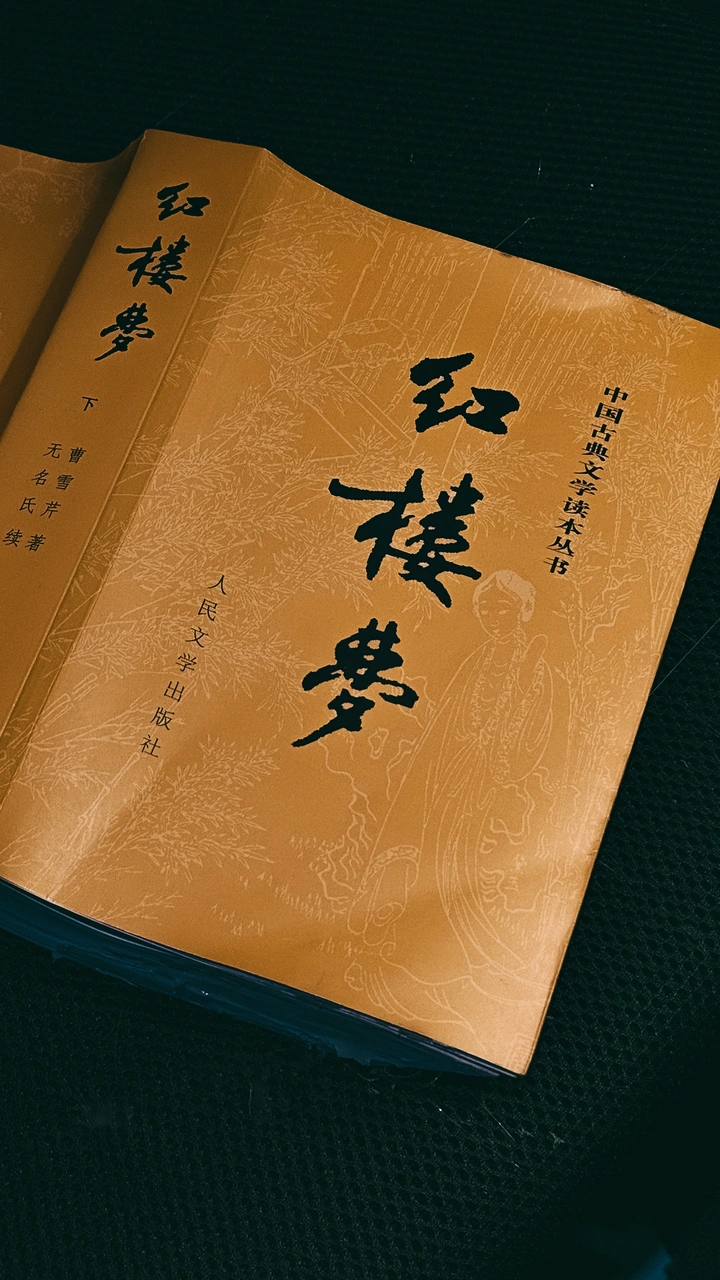 红楼梦
下
曹雪芹 著
无名氏 续
中国古典文学读本丛书
红楼梦
人民文学出版社